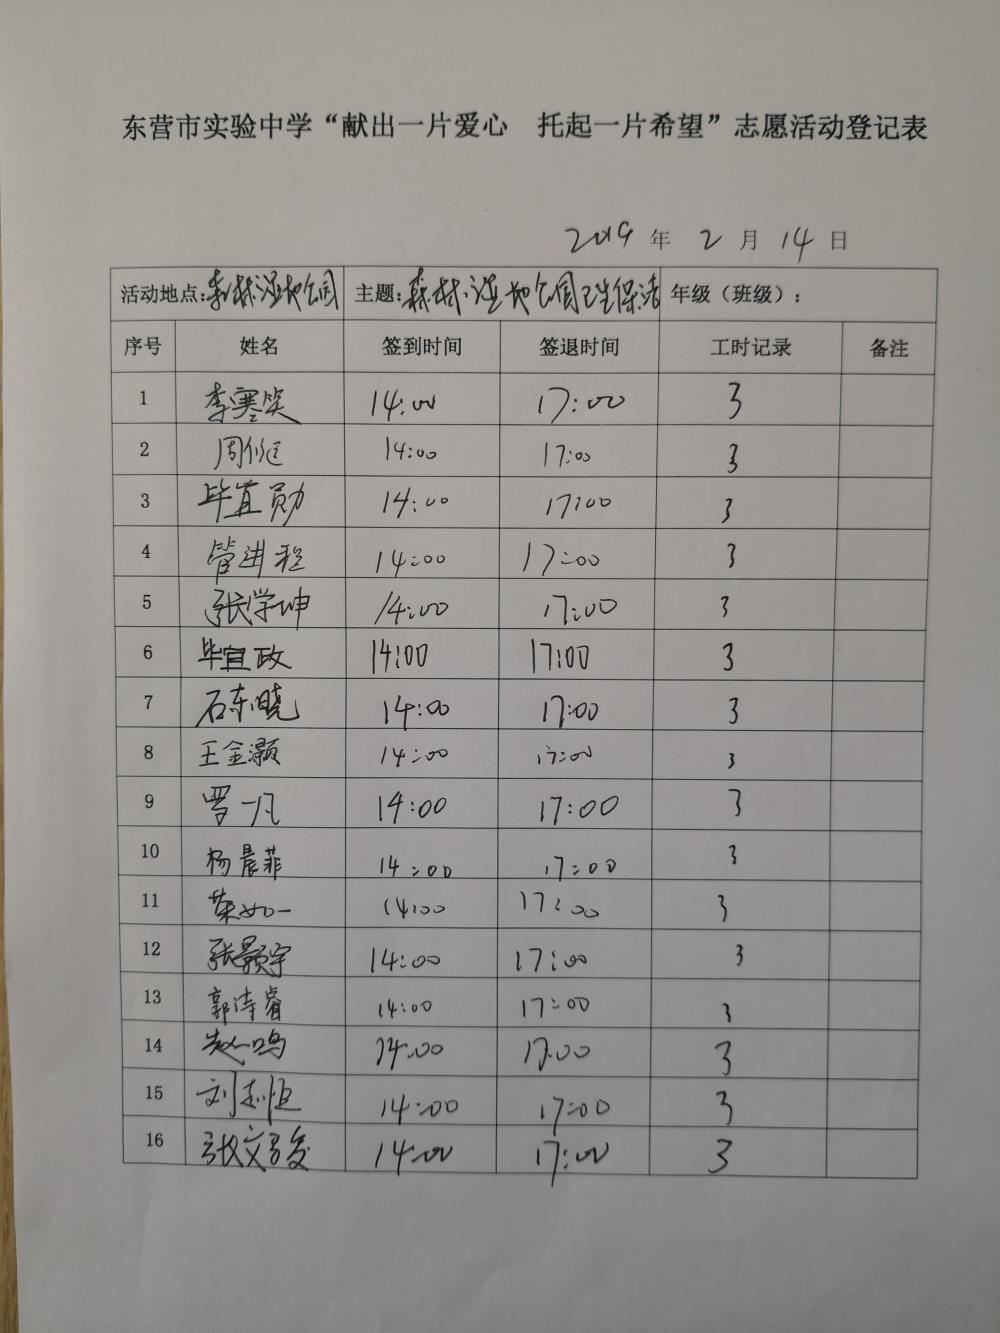 东营市实验中学“献出一片爱心 托起一片希望”志愿活动登记表
2019 年 2 月 14 日
活动地点:森林湿地公园 主题:森林湿地公园卫生保洁 年级（班级）:
序号 姓名 签到时间 签退时间 工时记录 备注
1 李寒笑 14:00 17:00 3
2 周 14:00 17:00 3
3 毕宜勋 14:00 17:00 3
4 管进程 14:00 17:00 3
5 张学坤 14:00 17:00 3
6 毕宜政 14:00 17:00 3
7 石东晓 14:00 17:00 3
8 王金灏 14:00 17:00 3
9 罗一凡 14:00 17:00 3
10 杨晨菲 14:00 17:00 3
11 如一 14:00 17:00 3
12 张颢宇 14:00 17:00 3
13 郭诗睿 14:00 17:00 3
14 赵一鸣 14:00 17:00 3
15 刘志恒 14:00 17:00 3
16 张文 14:00 17:00 3